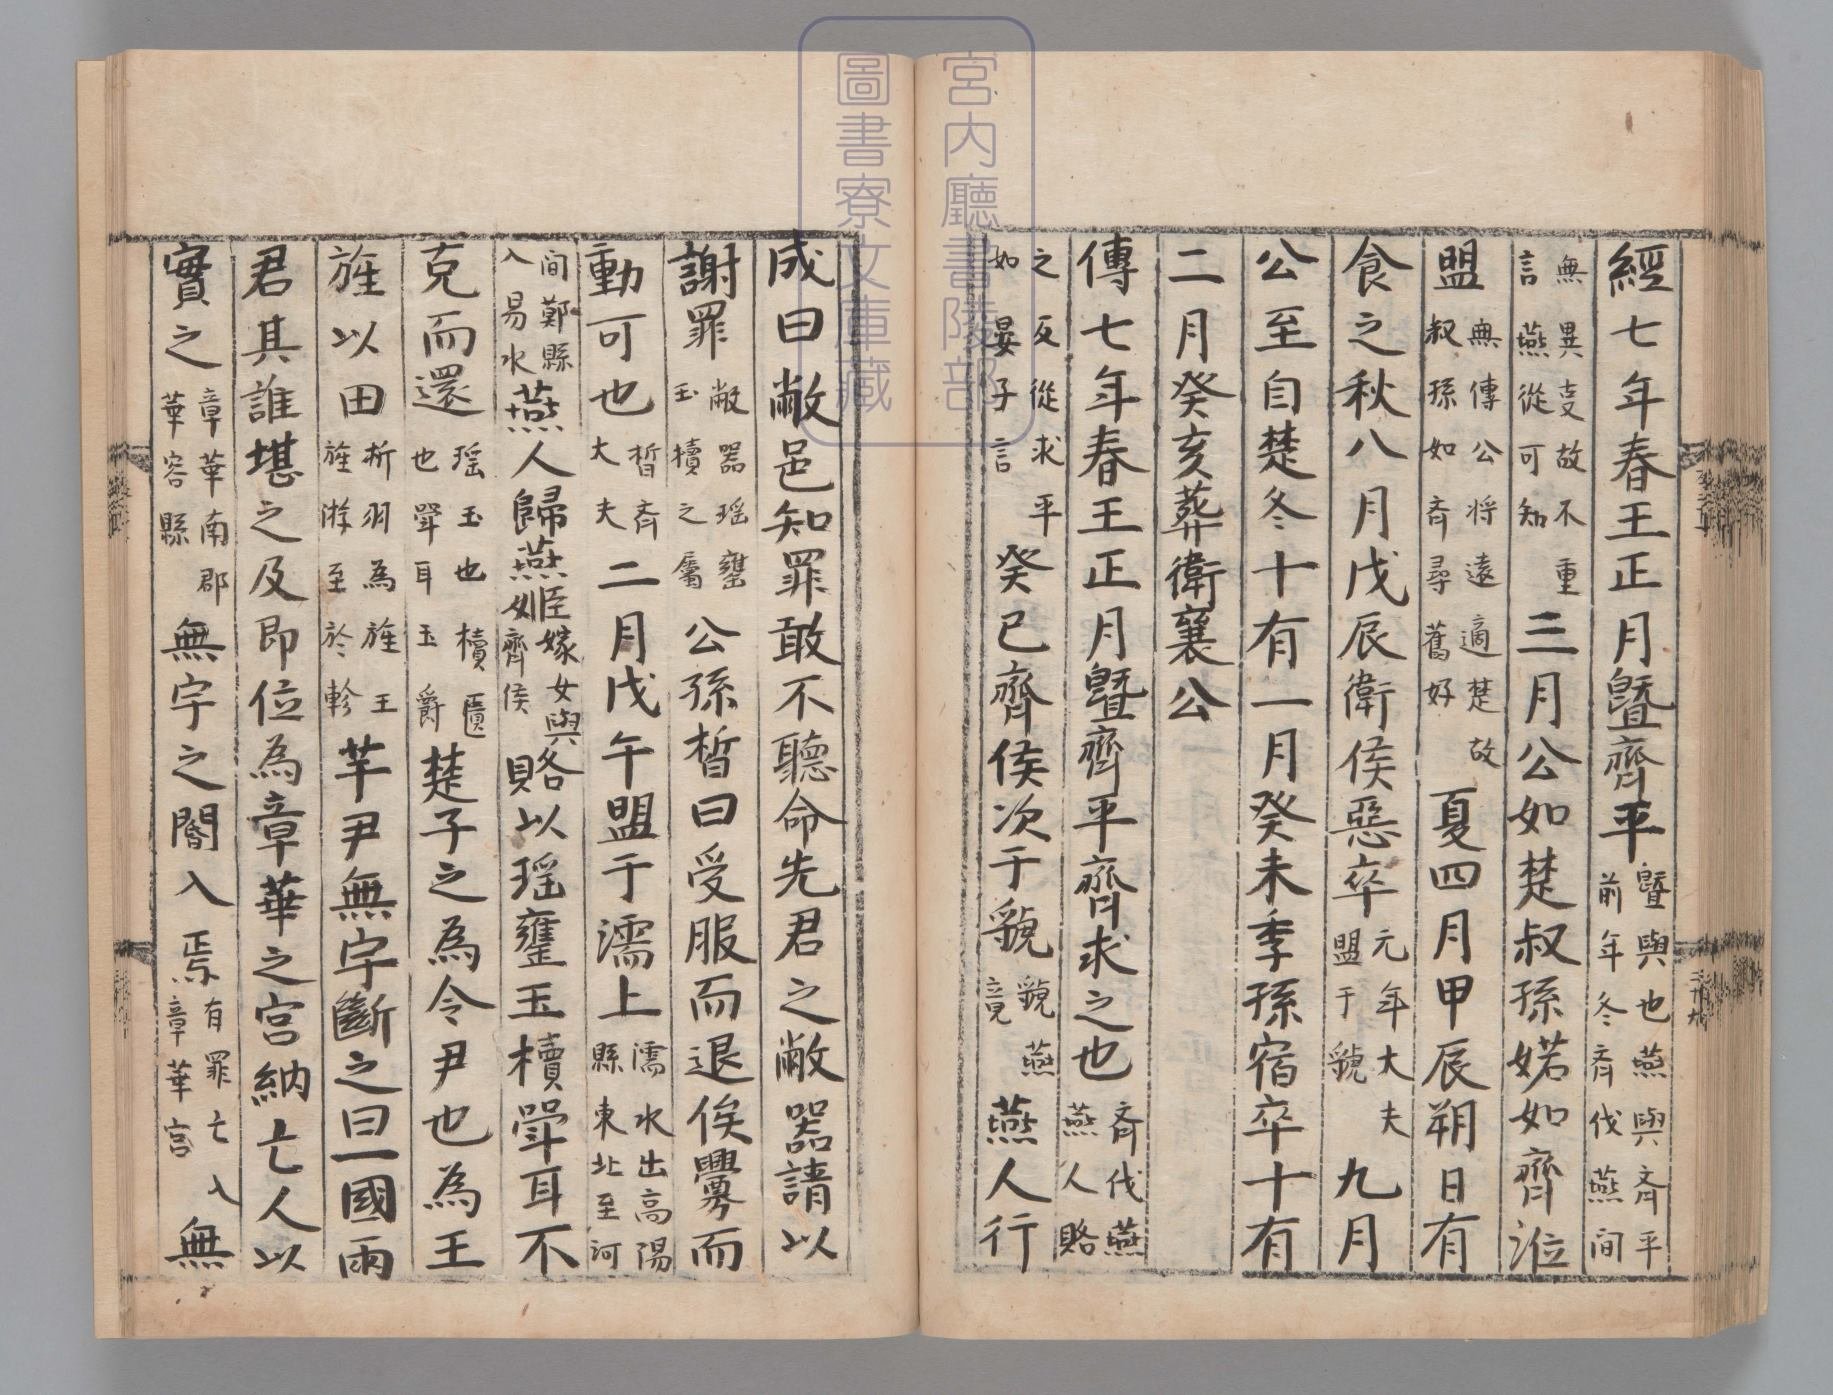 經七年春王正月曁齊平曁與也燕與齐平前年冬齐伐燕間
無異叓故不重言燕從可知三月公如楚叔孫婼如齊涖
盟無傳公將遠適楚故叔孫如齐尋舊好夏四月甲辰朔日有
食之秋八月戊辰衛侯惡卒元年大夫盟于虢九月
公至自楚冬十有一月癸未季孫宿卒十有
二月癸亥葬衛襄公
傳七年春王正月曁齊平齊求之也齐伐燕燕人賂
之反從求平如晏子言癸巳齊侯次于虢虢燕竟燕人行
成曰敝邑知罪敢不聽命先君之敝器請以
謝罪敝器瑶罋玉櫝之屬公孫晳曰受服而退俟舋而
動可也晳齐大夫二月戊午盟于濡上濡水出高陽縣東北至河
間鄭縣入易水燕人歸燕姬嫁女與齊侯賂以瑶罋玉櫝斝耳不
克而還瑶玉也櫝匱也斝耳玉爵楚子之為令尹也為王
旌以田析羽為旌王旌游至於軫芊尹無宇斷之曰一國兩
君其誰堪之及即位為章華之宮納亡人以
實之章華南郡華容縣無宇之閽入焉有罪亡入章華宮無
宮内廳書陵部
圖書寮文庫藏